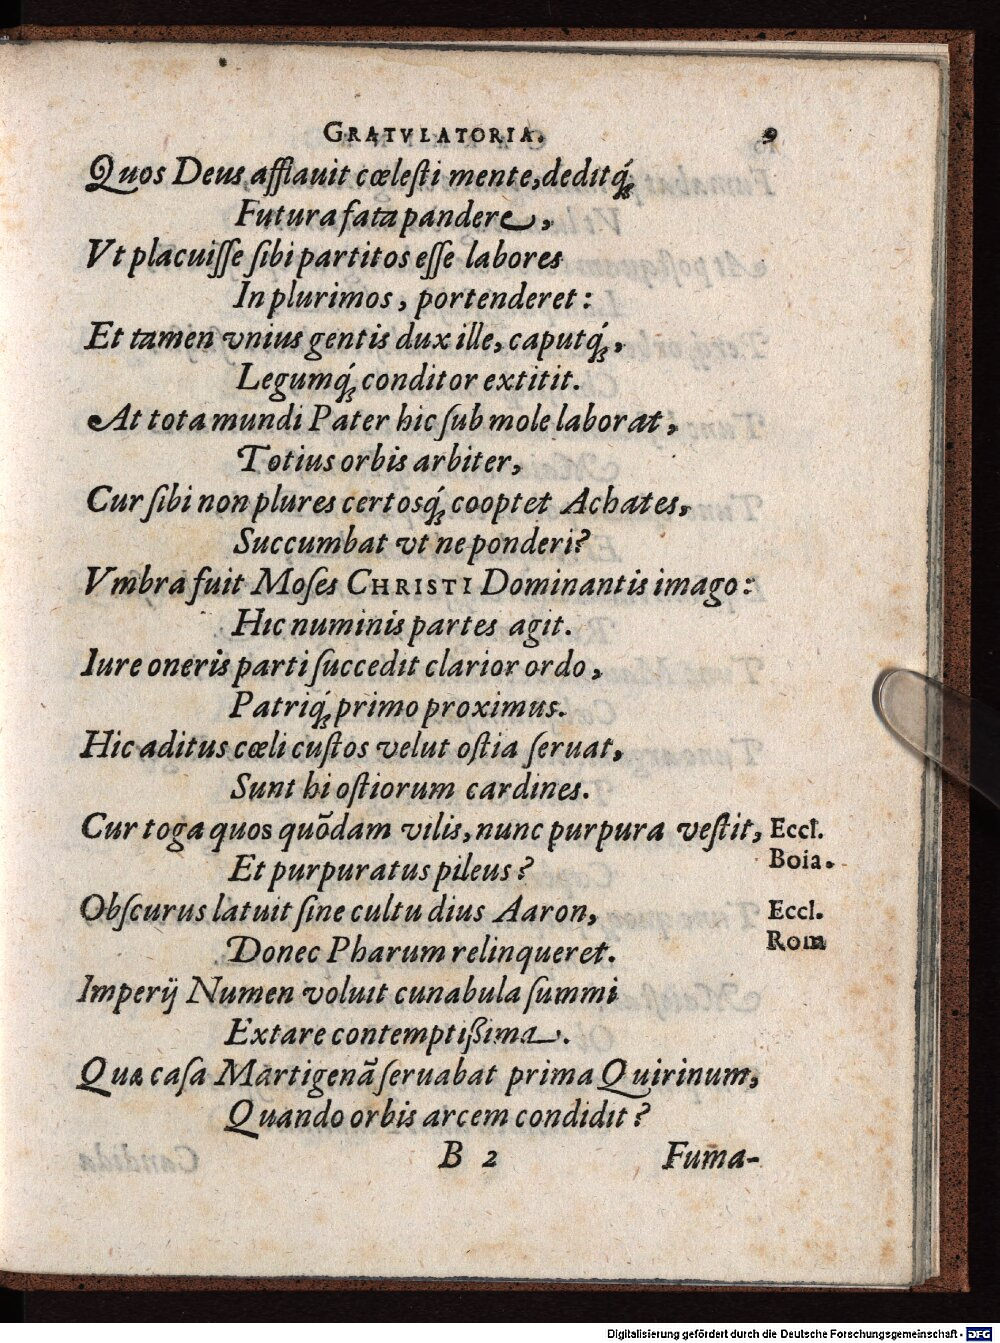 GRATVLATORIA. 9
Quos Deus afflauit cœlesti mente, deditq́;
Futura fata pandere,
Vt placuisse sibi partitos esse labores
In plurimos, portenderet:
Et tamen vnius gentis dux ille, caputq́;,
Legumq́; conditor extitit.
At tota mundi Pater hic sub mole laborat,
Totius orbis arbiter,
Cur sibi non plures certosq́; cooptet Achates,
Succumbat vt ne ponderi?
Vmbra fuit Moses CHRISTI Dominantis imago:
Hic numinis partes agit.
Iure oneris parti succedit clarior ordo,
Patriq́; primo proximus.
Hic aditus cœli custos velut ostia seruat,
Sunt hi ostiorum cardines.
Cur toga quos quõdam vilis, nunc purpura vestit, Eccl.
Boia.
Et purpuratus pileus?
Obscurus latuit sine cultu dius Aaron, Eccl.
Rom
Donec Pharum relinqueret.
Imperij Numen voluit cunabula summi
Extare contemptißima.
Qua casa Martigenã seruabat prima Quirinum,
Quando orbis arcem condidit?
B 2 Fuma-
Digitalisierung gefördert durch die Deutsche Forschungsgemeinschaft - DFG